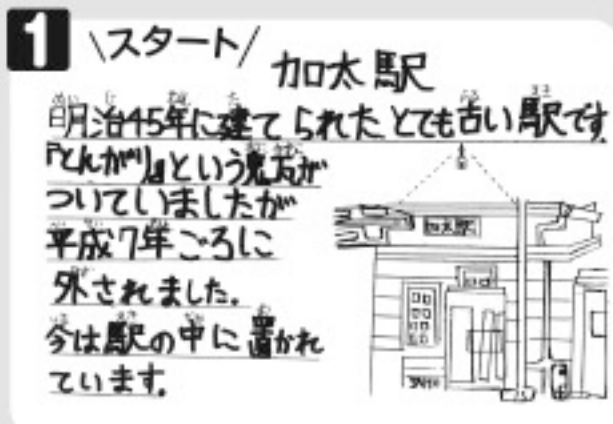 1
\スタート/
加太駅
明治45年に建てられたとても古い駅です
『とんがり』という鬼瓦が
ついていましたが
平成7年ごろに
外されました。
今は駅の中に置かれ
ています。
加太駅